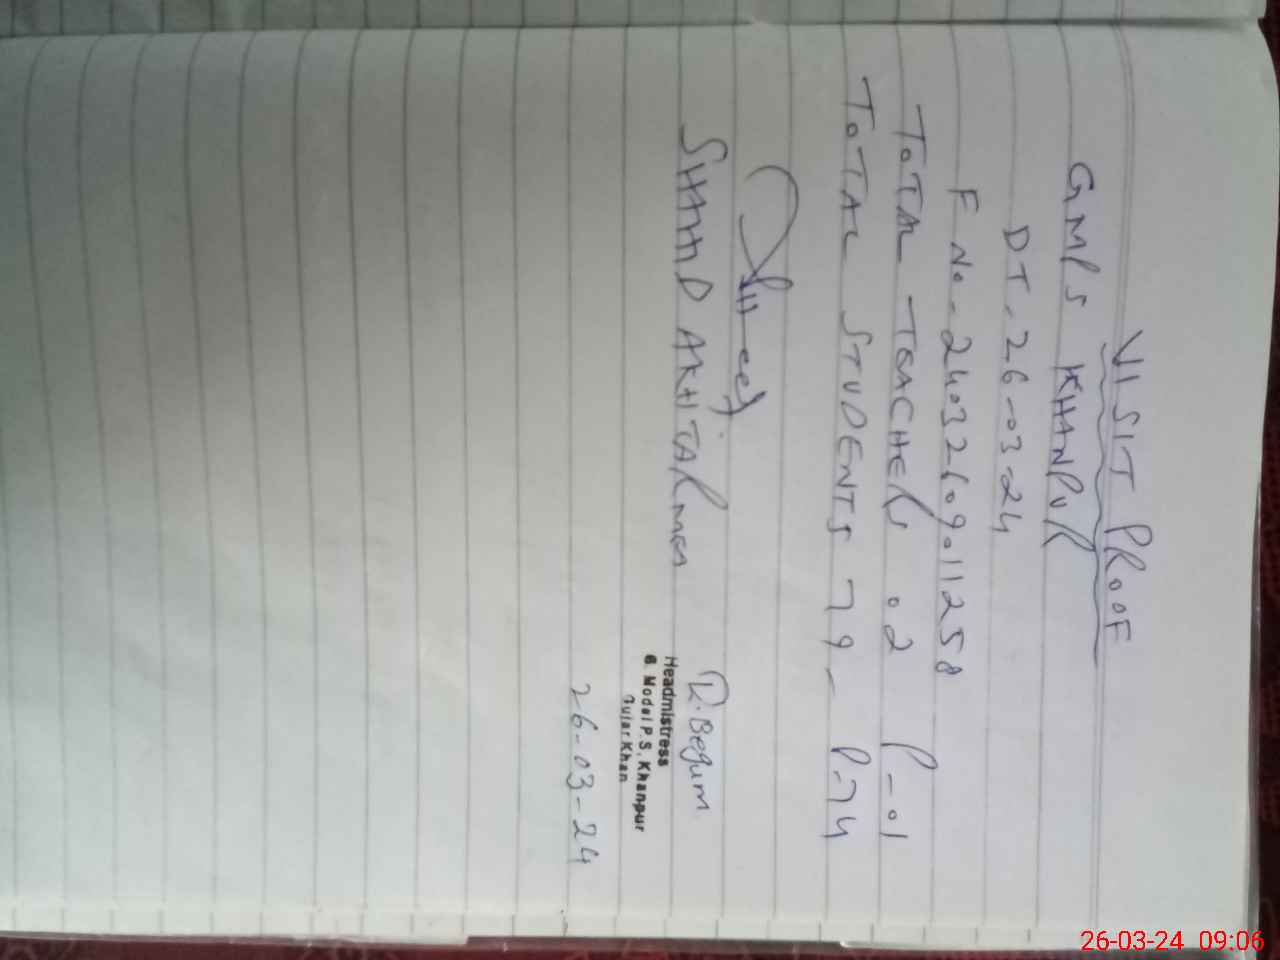 VISIT PROOF
GMPS KHANPUR
DT. 26-03-24
F No. 24032609011258
TOTAL TEACHERS 02 P-01
TOTAL STUDENTS 79- P-74
R.Begum
Headmistress
G. Model P.S, Khanpur
Gujar Khan
26-03-24
26-03-24 09:06